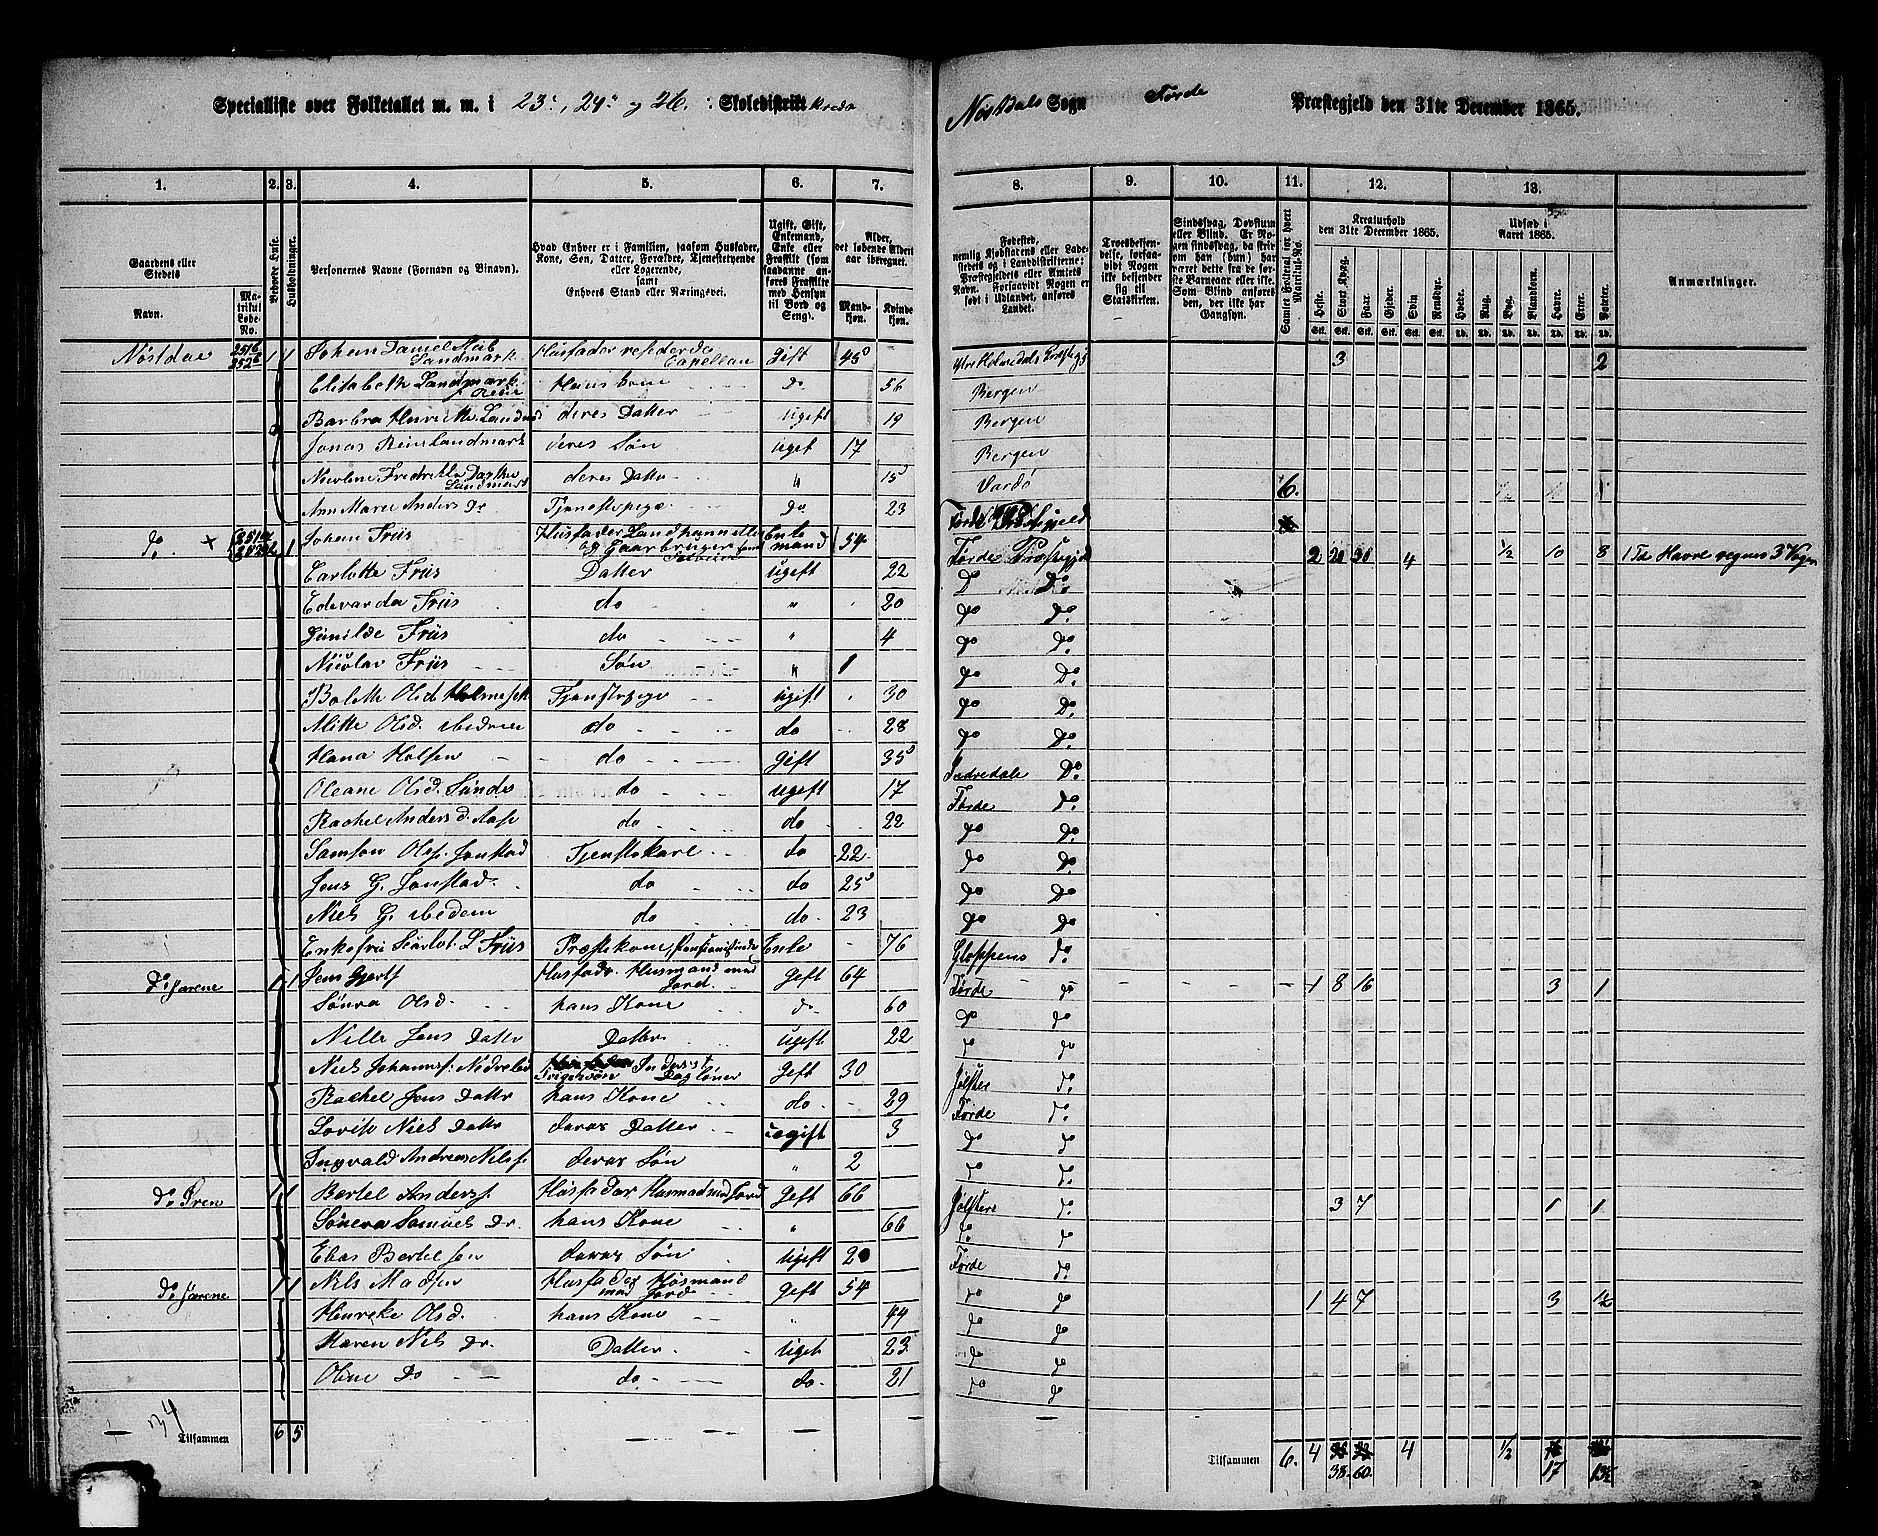 Specialliste over Folketallet m. m. i 23, 24 og 26. Skoledistrikt
Nøstdals Sogn Førde Præstegjeld den 31te December 1865.
1. 2. 3. 4. 5. 6. 7.
8. 9. 10. 11. 12. 13.
Gaardens eller Stedets
Navn.
Matrikul Løbe-No.
Beboede Huse.
Husholdninger.
Personernes Navne (Fornavn og Binavn).
Hvad Enhver er i Familien, saasom Husfader, Kone, Søn, Datter, Forældre, Tjenestetyende eller Logerende, samt Enhvers Stand eller Næringsvei.
Ugift, Gift, Enkemand, Enke eller Fraskilt (som saadanne anføres Fraskilte med Hensyn til Bord og Seng).
Alder, det løbende Alders Aar iberegnet.
Mandkjøn. Kvindekjøn.
Fødested, nemlig Kjøbstadens eller Ladestedets og i Landdistrikterne: Præstegjeldets eller Amtets Navn. Forsaavidt Nogen er født i Udlandet, anføres Landet.
Troesbekjendelse, forsaavidt Nogen ikke bekjender sig til Statskirken.
Sindssvag, Døvstum eller Blind.
Samlet Folketal for hvert Matrikul-No.
Kreaturhold den 31te December 1865.
Heste. Stort Kvæg. Faar. Gjeder. Sviin. Rensdyr.
Udsæd i Aaret 1865.
Hvede. Rug. Byg. Blandkorn. Havre. Erter. Poteter.
Anmærkninger.
Nøstdal 251b 252b 1 1 Johan Daniel Landmark Husfader residerende Capellan gift 45 Præstegj 3 2
Elisabeth Landmark f. Rein Hans Kone do 56 Bergen
Barbra Henrikke Landmark deres Datter ugift 19 Bergen
Jonas Rein Landmark deres Søn uget 17 Bergen
Nicoline Fredrikke Landmark deres Datter " 15 Vardø 6.
Ann Marie Anders Dr Tjenestepige do 23 Førde Præstegjeld
do. × 1 Johan Friis Husfader Landhandler og Gaardbruger Selveier Enkemand 54 Førde Præstegjd 2 20 30 4 ½ 10 8 1 Td Havre regnes 3 Voger
Carlotte Friis Datter ugift 22 D Do.
Edevarda Friis do " 20 do Do.
Gunilde Friis do " 4 do Do.
Nicolai Friis Søn " 1 do Do.
Bolette Olsd. Tjenestepige ugift 30 do Do.
Mitte Olsd. do do 28 do Do.
Hana Holsen do gift 35 Indredale Do.
Oleane Olsd. Sunde do ugift 17 Førde do.
Rachel Anders D. Aase do do 22 do do.
Samson Ols. Jonstad Tjenestekarl do 22 do Do.
Jens G. Jonstad do do 25 do Do
Niels G. do do. 23 do do
Enkefru Scarlot. L Friis Præstekone, Pensionistinde Enke 76 Gloppens do.
do Jarene 1 1 Jens Gjertss Husfader Husmand med Jord Gift 64 Førde do 1 8 16 3 1
Sønva Olsd. hans Kone do 60 do do
Nille Jens Datter Datter ugift 22 do do
Niels Johannss. Svigersøn Inderst Dagløner Gift 30 Jølster do.
Rachel Jens Datter hans Kone do. 29 Førde do.
Lovise Niels Datter deres Datter ugift 3 do do
Ingvald Andreas Nilss. deres Søn " 2 do do.
do Øren 1 1 Bertel Anderss. Husfader Husmand med Jord Gift 66 Jølsters do. 3 7 1 1
Søneva Samuels Dr. hans Kone " 66 do. do
Elias Bertelsen deres Søn Ugift 20 Førde do.
do Jarene 1 1 Nils Madsen Husfader Husmand med Jord gift 54 do do 1 4 7 3 1½
Henreke Olsd. hans Kone " 44 do do
Maren Nils Dr. Datter Uget 23 do do
Oline Do do do. 21 do do
34
Tilsammen 6 5
Tilsammen 6. 4 38. 60. 4 ½ 17 13½